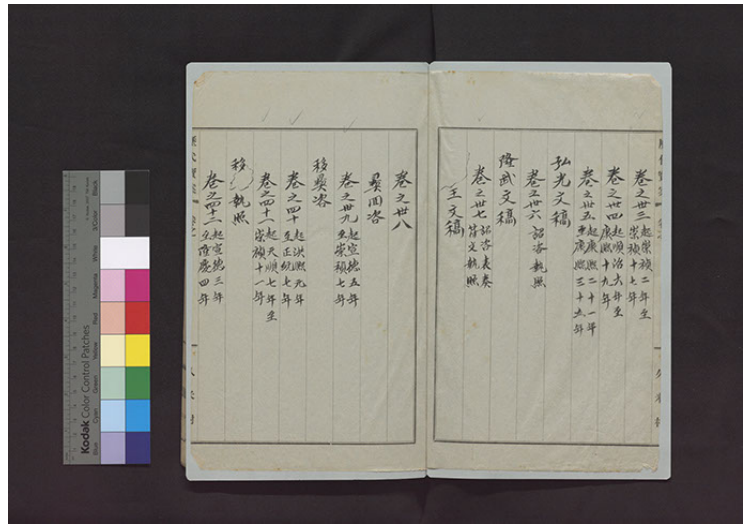 卷之卅三 起崇禎二年至
崇禎十七年
卷之卅四 起順治六年至
康熙十九年
卷之卅五 起康熙二十一年
至康熙三十五年
弘光文稿
卷之卅六 詔咨執照
隆武文稿
卷之卅七 詔咨表奏
符文執照
王文稿
卷之卅八
彝回咨
卷之卅九 起宣德五年
至崇禎七年
移彝咨
卷之四十 起洪熙元年
至正統七年
卷之四十一 起天順七年至
崇禎十一年
移 執照
卷之四十二 起宣德三年
至隆慶四年
Kodak Color Control Patches
Blue
Cyan
Green
Yellow
Red
Magenta
White
3/Color
Black